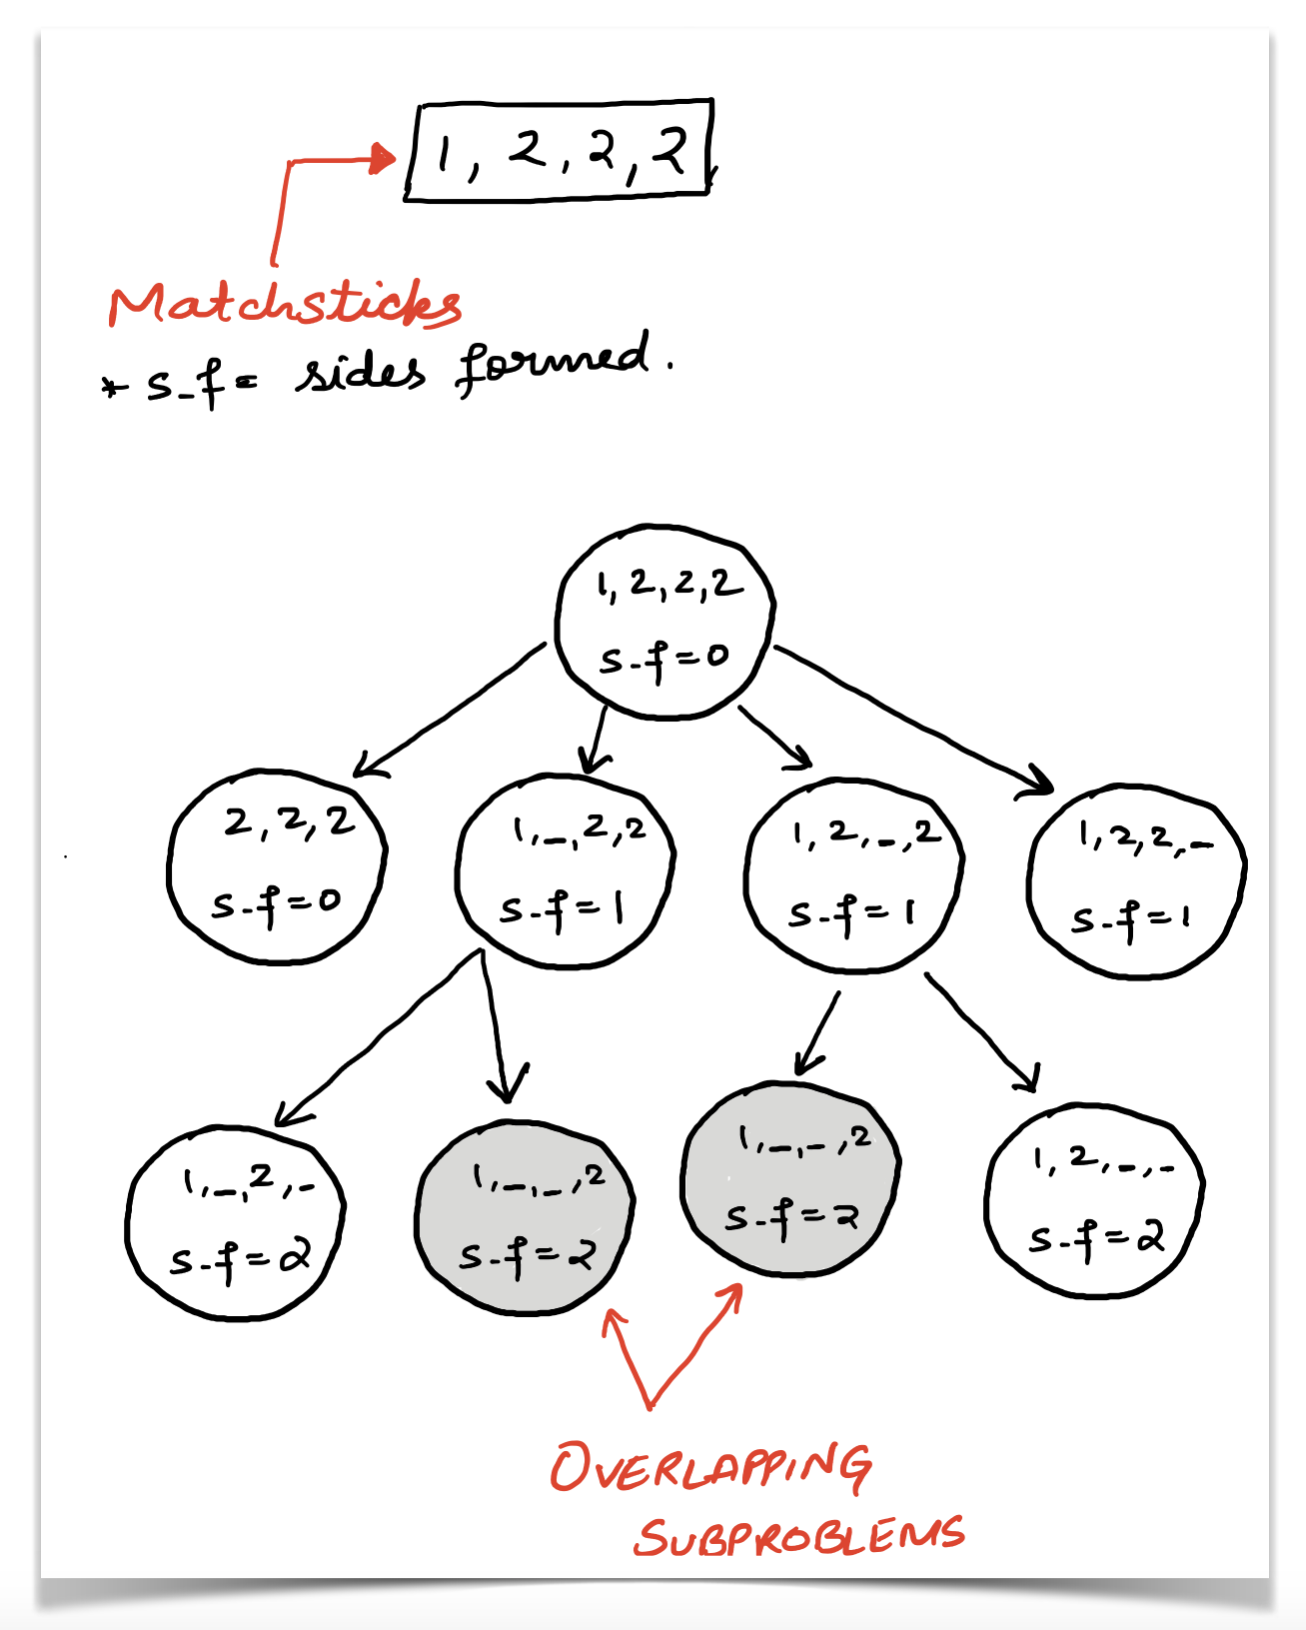 1, 2, 2, 2
Matchsticks
* s_f = sides formed.
1, 2, 2, 2
s-f=0
2, 2, 2
s-f=0
1, _, 2, 2
s-f=1
1, 2, _, 2
s-f=1
1, 2, 2, _
s-f=1
1, _, 2, _
s-f=2
1, _, _, 2
s-f=2
1, _, _, 2
s-f=2
1, 2, _, _
s-f=2
OVERLAPPING
SUBPROBLEMS